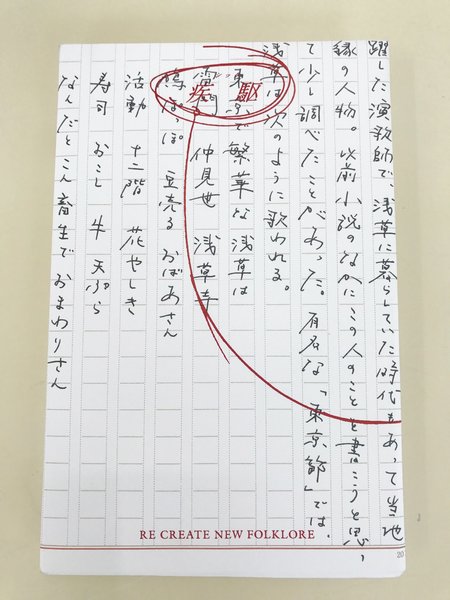 躍した演歌師で、浅草に暮らしていた時代もあって当地
縁の人物。以前小説のなかにこの人のことを書こうと思っ
て少し調べたことがあった。有名な「東京節」では、
浅草は次のように歌われる。
東京で繁華な浅草は
雷門 仲見世 浅草寺
鳩ぽっぽ 豆売るおばあさん
活動 十二階 花やしき
寿司 おこし 牛 天ぷら
なんだとこん畜生でおまわりさん
疾駆
RE CREATE NEW FOLKLORE
20